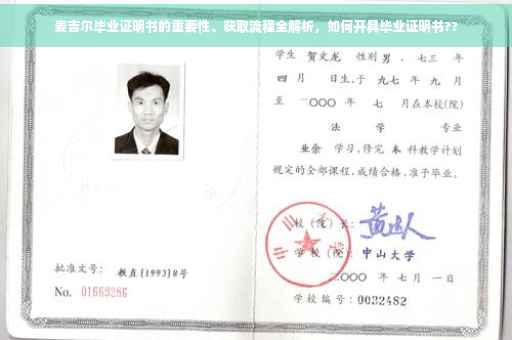 麦吉尔毕业证明书的重要性、获取流程全解析，如何开具毕业证明书??
学生 贺文龙 性别男，七三 年
四 月 日生，于 九七 年 九 月
至 二〇〇〇 年 七 月在本校(院)
法 学 专业
业余 学习，修完 本 科教学计划
规定的全部课程，成绩合格，准予毕业。
校(院)长：
学校(院)：中山大学
二〇〇〇 年 七 月 一 日
学校编号：0032482
批准文号：教直[1993]8号
No. 01669286